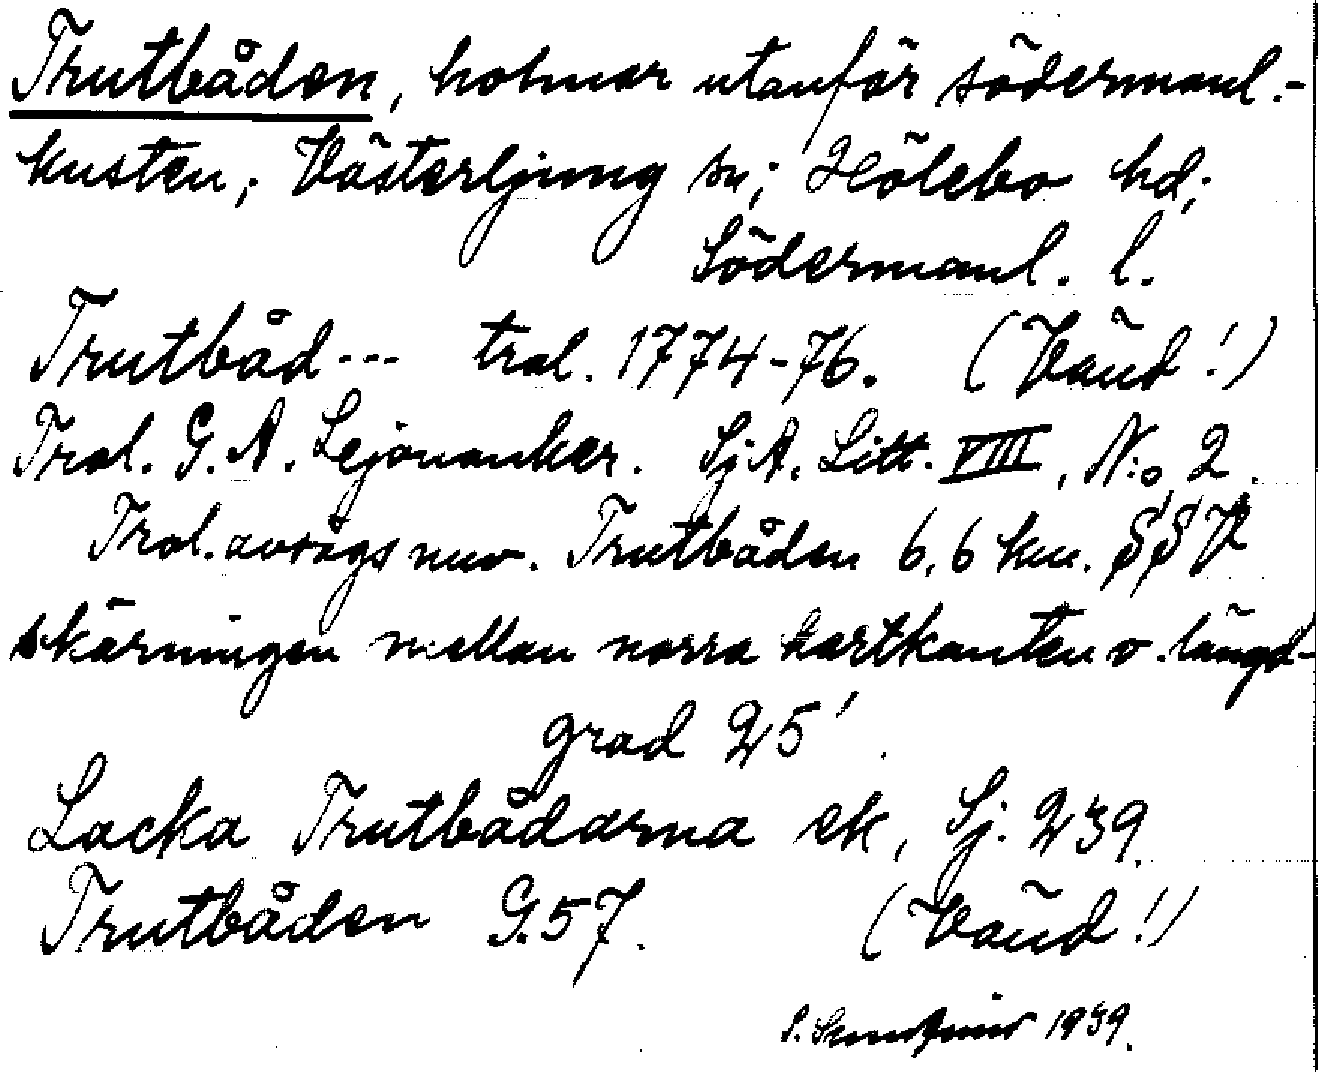 Trutbåden, holmar utanför södermanl.-
kusten; Västerljung sn; Hölebo hd;
Södermanl. l.
Trutbåd--- trol. 1774-76. (Vänd!)
Trol. G.A. Lejonanker. SjA. Litt. VIII, N:o 2.
Trol. avsågs nuv. Trutbåden 6,6 km. SSV
skärningen mellan norra kartkanten o. längd-
grad 25'
Lacka Trutbådarna ek, Sj. 239.
Trutbåden G.57. (Vänd!)
1939.